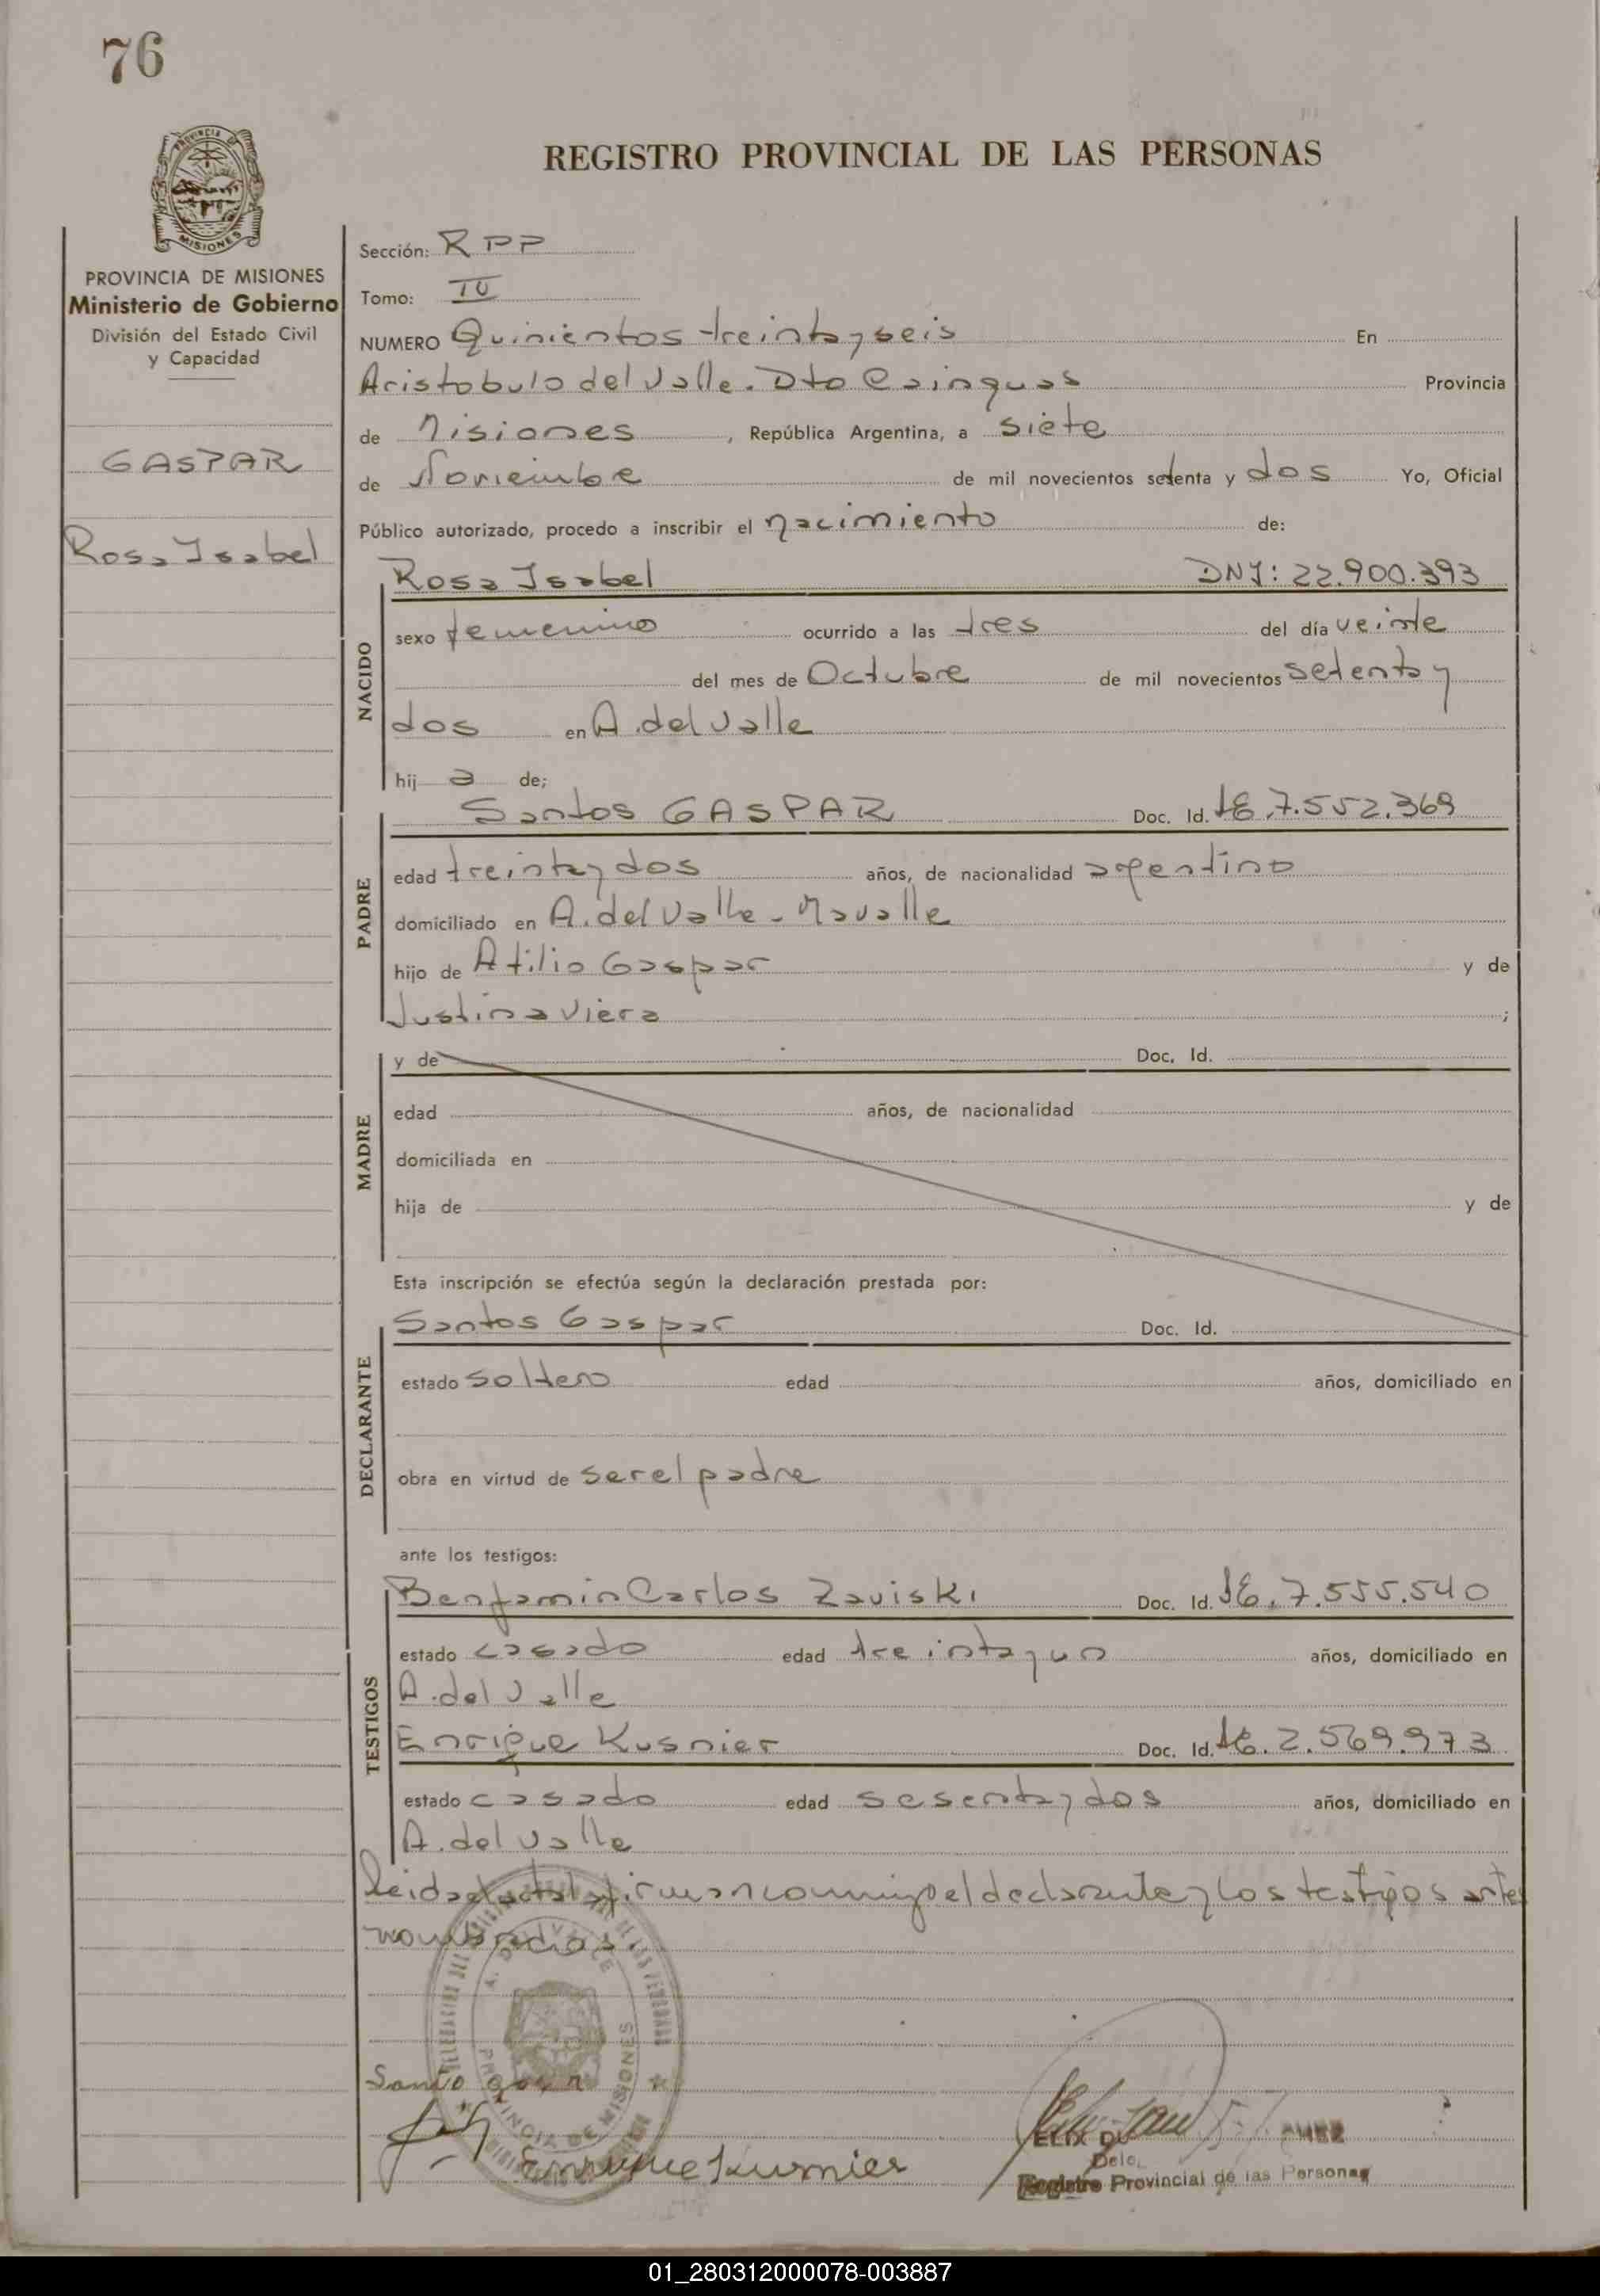 76
PROVINCIA DE
MISIONES
REGISTRO PROVINCIAL DE LAS PERSONAS
PROVINCIA DE MISIONES
Ministerio de Gobierno
División del Estado Civil
y Capacidad
GASPAR
Rosa Isabel
Sección: RPP
Tomo: IV
NUMERO Quinientos treinta y seis En
Aristobulo del Valle. Dto Cainguas Provincia
de Misiones, República Argentina, a siete
de Noviembre de mil novecientos setenta y dos Yo, Oficial
Público autorizado, procedo a inscribir el nacimiento de:
NACIDO
Rosa Isabel DNI: 22.900.393
sexo femenino ocurrido a las tres del día veinte
del mes de Octubre de mil novecientos setenta y
dos en A. del Valle
hij a de;
PADRE
Santos GASPAR Doc. Id. 7.552.369
edad treinta y dos años, de nacionalidad argentino
domiciliado en A. del Valle -
hijo de Atilio Gaspar y de
Justina Viera ;
MADRE
y de Doc. Id.
edad años, de nacionalidad
domiciliada en
hija de y de
Esta inscripción se efectúa según la declaración prestada por:
DECLARANTE
Santos Gaspar Doc. Id.
estado soltero edad años, domiciliado en
obra en virtud de ser el padre
ante los testigos:
TESTIGOS
Benjamin Carlos Zaviski Doc. Id. 7.555.540
estado casado edad treinta y un años, domiciliado en
A. del Valle
Enrique Kusnier Doc. Id. 2.569.973
estado casado edad sesenta y dos años, domiciliado en
A. del Valle
Leida el acta la firman conmigo el declarante y los testigos antes
nombrados.
A. DEL VALLE
PROVINCIA DE MISIONES
Enrique Kusnier
Registro Provincial de las Personas
01_280312000078-003887